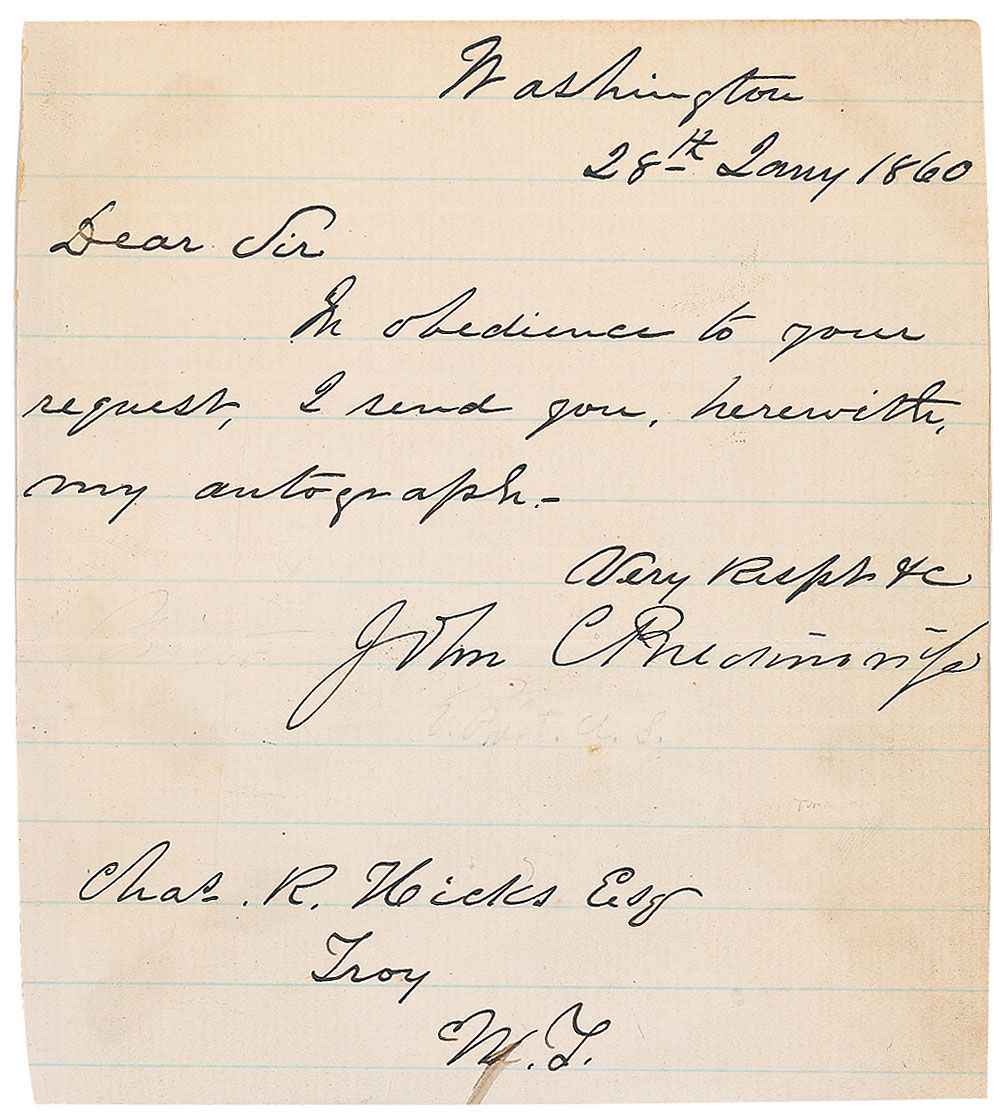 Washington
28th Jany 1860
Dear Sir
In obedience to your
request, I send you, herewith,
my autograph.-
Very Respt &c
John C Breckinridge
V. Prest. U. S.
Chas. R. Hicks Esq
Troy
N.Y.